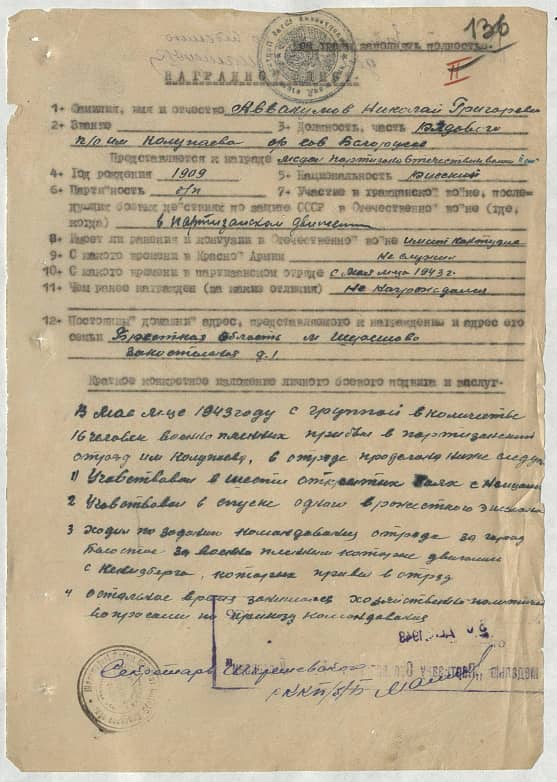 136
II
заполнять полностью
НАГРАДНОЙ ЛИСТ
1- Фамилия, имя и отчество Аввакумов Николай Григорьев
2- Звание 3- Должность, часть Рядового
п/о им Колупаева
Представляется к награде медаль партизану отечествен войны
4- Год рождения 1909 5- Национальность Русский
6- Парти"ность б/п 7- Участие в гражданско" во"не, после-
дующих боевых де"ствиях по защите СССР в Отечественно" во"не (где,
когда) в Партизанском движении
8- Имеет ли ранения и контузии в Отечественно" во"не имеет контузию
9- С какого времени в Красно" Армии не служил
10- С какого времени в партизанском отряде с мая м-ца 1943 г.
11- Чем ранее награжден (за какие отличия) Не награждался
12- Постоянны" домашни" адрес, представляемого к награждению и адрес его
семьи Брестская область м Шерешово
д. 1
Краткое конкретное изложение личного боевого подвига и заслуг-
В мае м-це 1943 году с группой в количестве
16 человек военно пленных прибыл в партизанский
отряд им Колупаева, в отряде проделана ниже следу
1) Учавствовал в шести открытых боях с немцами
2 Учавствовал в спуске одного вражеского эшелона
3 Ходил по заданию командования отряда за город
Белосток за военно пленными которые двигались
с Кенизберга, которых привел в отряд
4 остальное время занимался хозяйственно политич
вопросами по приказу командования
1948
Секретарь Шерешевского
РК КП/б/Б